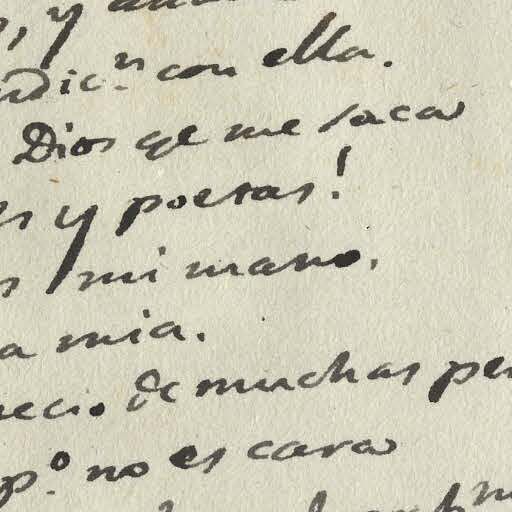 y
con ella.
Dios qe me saca
y poetas!
mi mano.
a mia.
de muchas per
pº no es cara